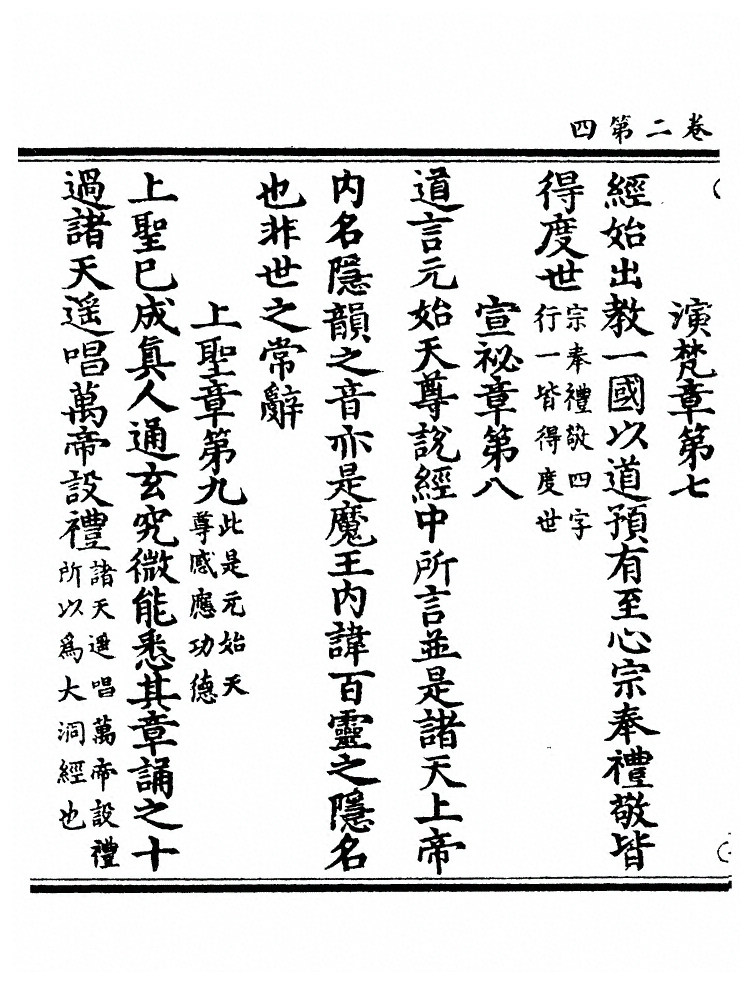 卷二第四
演梵章第七
經始出教一國以道預有至心宗奉禮敬皆
得度世宗奉禮敬四字行一皆得度世
宣祕章第八
道言元始天尊說經中所言並是諸天上帝
内名隱韻之音亦是魔王内諱百靈之隱名
也非世之常辭
上聖章第九此是元始天尊感應功德
上聖巳成眞人通玄究微能悉其章誦之十
過諸天遥唱萬帝設禮諸天遥唱萬帝設禮所以爲大洞經也